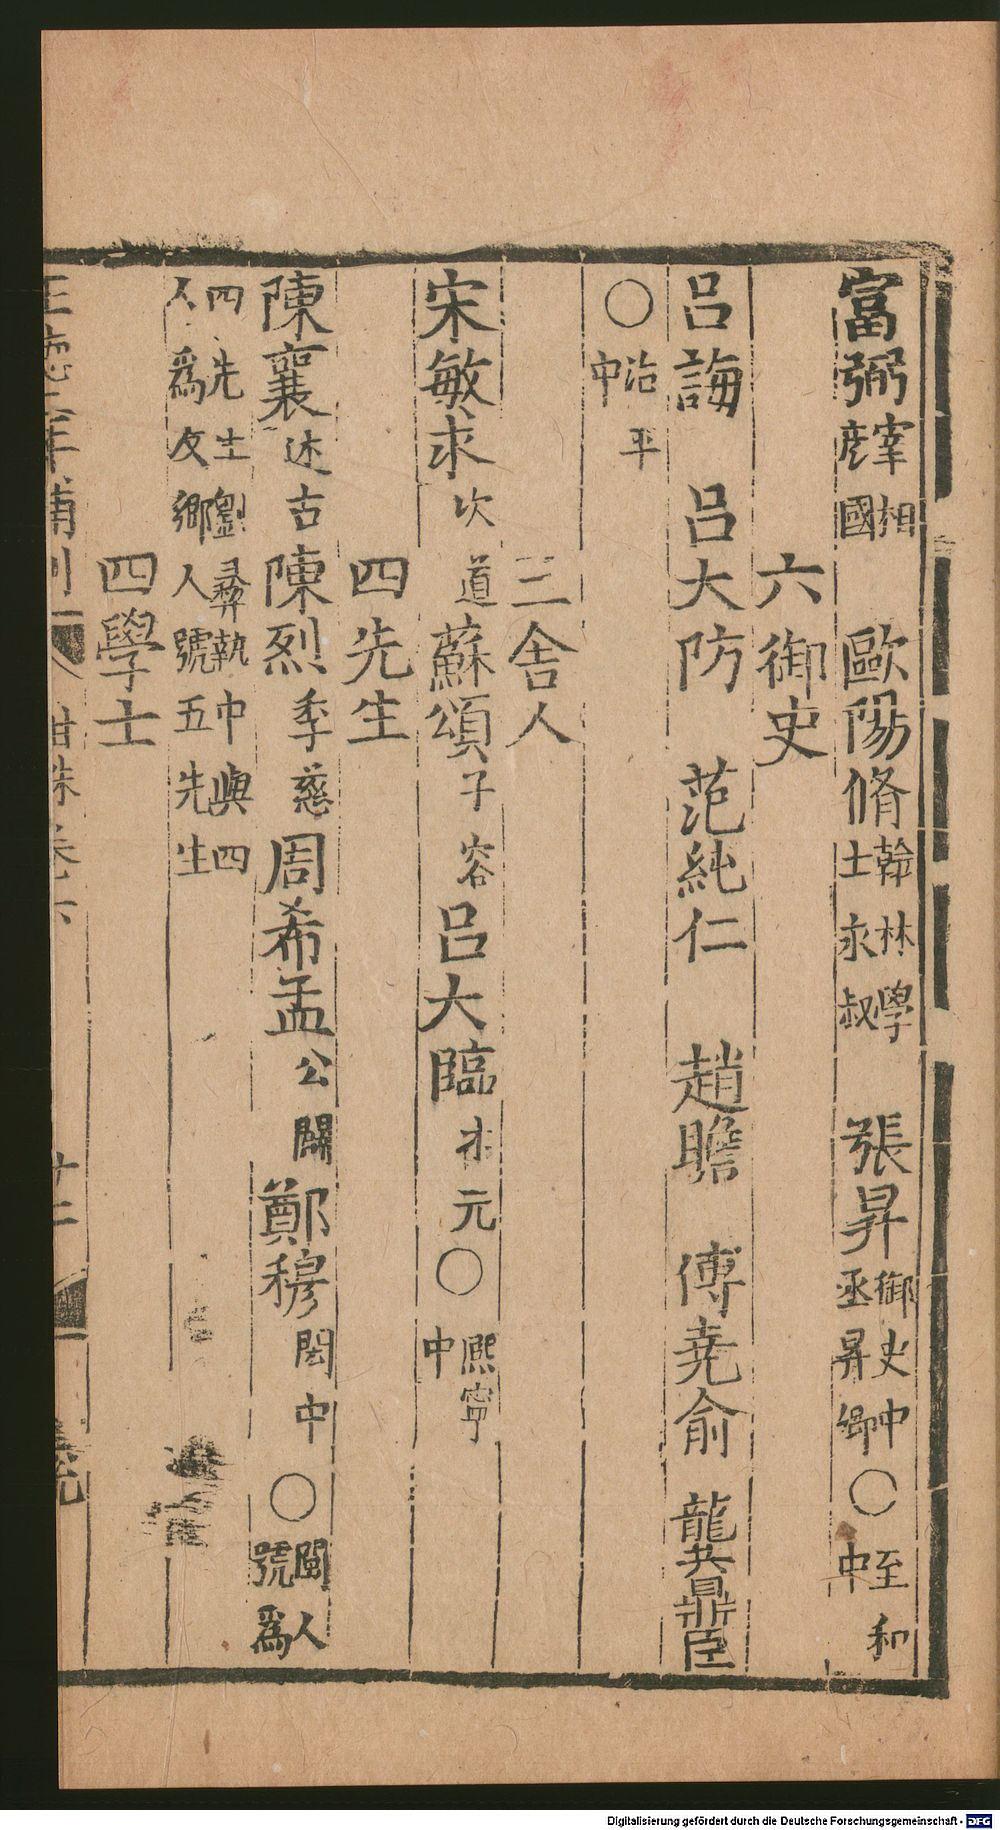 富弼宰相彦國　歐陽脩翰林學士永叔　張昇御史中丞昇卿〇至和中
六御史
呂誨　呂大防　范純仁　趙瞻　傅堯俞　龔鼎臣
〇治平中
三舍人
宋敏求次道蘇頌子容呂大臨才元〇熈寧中
四先生
陳襄述古陳烈季慈周希孟公闢鄭穆閎中〇閩人號爲
四先生劉彞執中與四人爲友鄉人號五先生
四學士
年補刊
卷六
十二
Digitalisierung gefördert durch die Deutsche Forschungsgemeinschaft - DFG